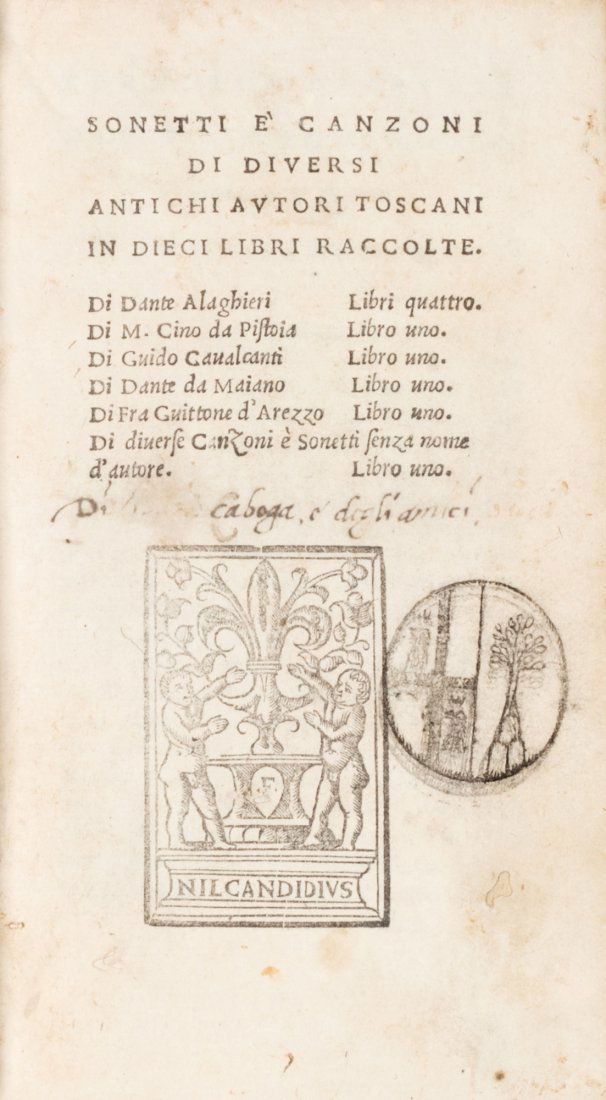 SONETTI E' CANZONI
DI DIVERSI
ANTICHI AVTORI TOSCANI
IN DIECI LIBRI RACCOLTE.
Di Dante Alaghieri Libri quattro.
Di M. Cino da Piſtoia Libro uno.
Di Guido Caualcanti Libro uno.
Di Dante da Maiano Libro uno.
Di Fra Guittone d'Arezzo Libro uno.
Di diuerſe Canzoni è Sonetti ſenza nome
d'autore. Libro uno.
Di caboga, e degli amici
NIL CANDIDIVS